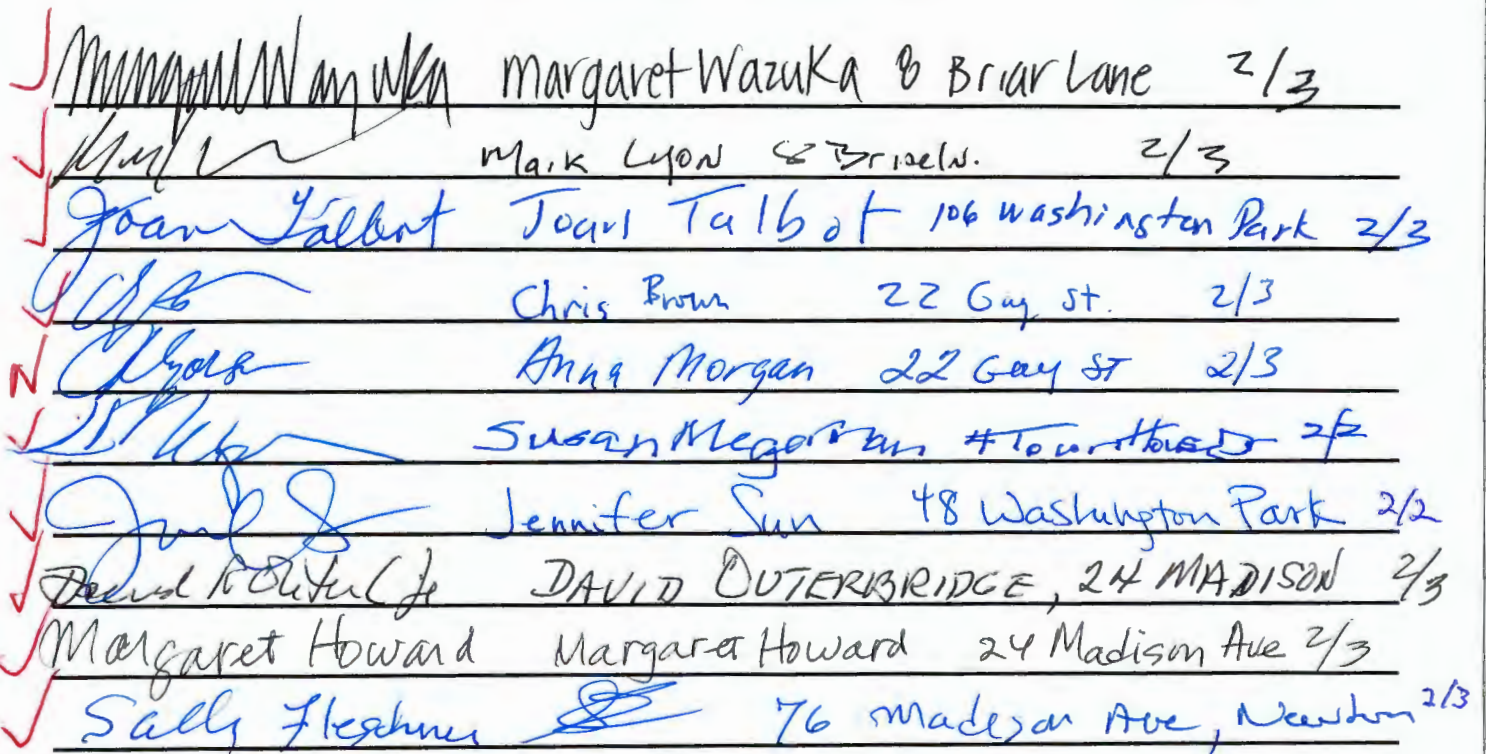 Margaret Wazuka Margaret Wazuka 8 Briar Lane 2/3
Mark Lyon 8 Briar Ln. 2/3
Joan Talbot Joan Talbot 106 Washington Park 2/3
Chris Brown 22 Gay St. 2/3
N Anna Morgan 22 Gay ST 2/3
Susan 2/2
Jennifer Sun 48 Washington Park 2/2
David DAVID OUTERBRIDGE, 24 MADISON 2/3
Margaret Howard Margaret Howard 24 Madison Ave 2/3
Sally 76 Madison Ave, Newton 2/3